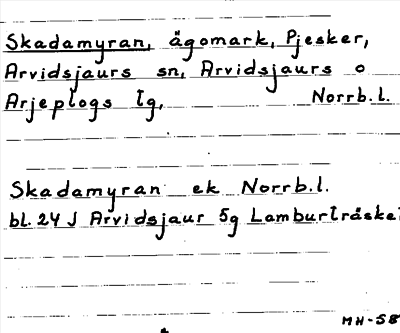 Skadamyran, ägomark, Pjesker,
Arvidsjaurs sn, Arvidsjaurs o
Arjeplogs tg, Norrb.l.
Skadamyran ek Norrb.l.
bl. 24 J Arvidsjaur 5g Lamburträske
MH-58